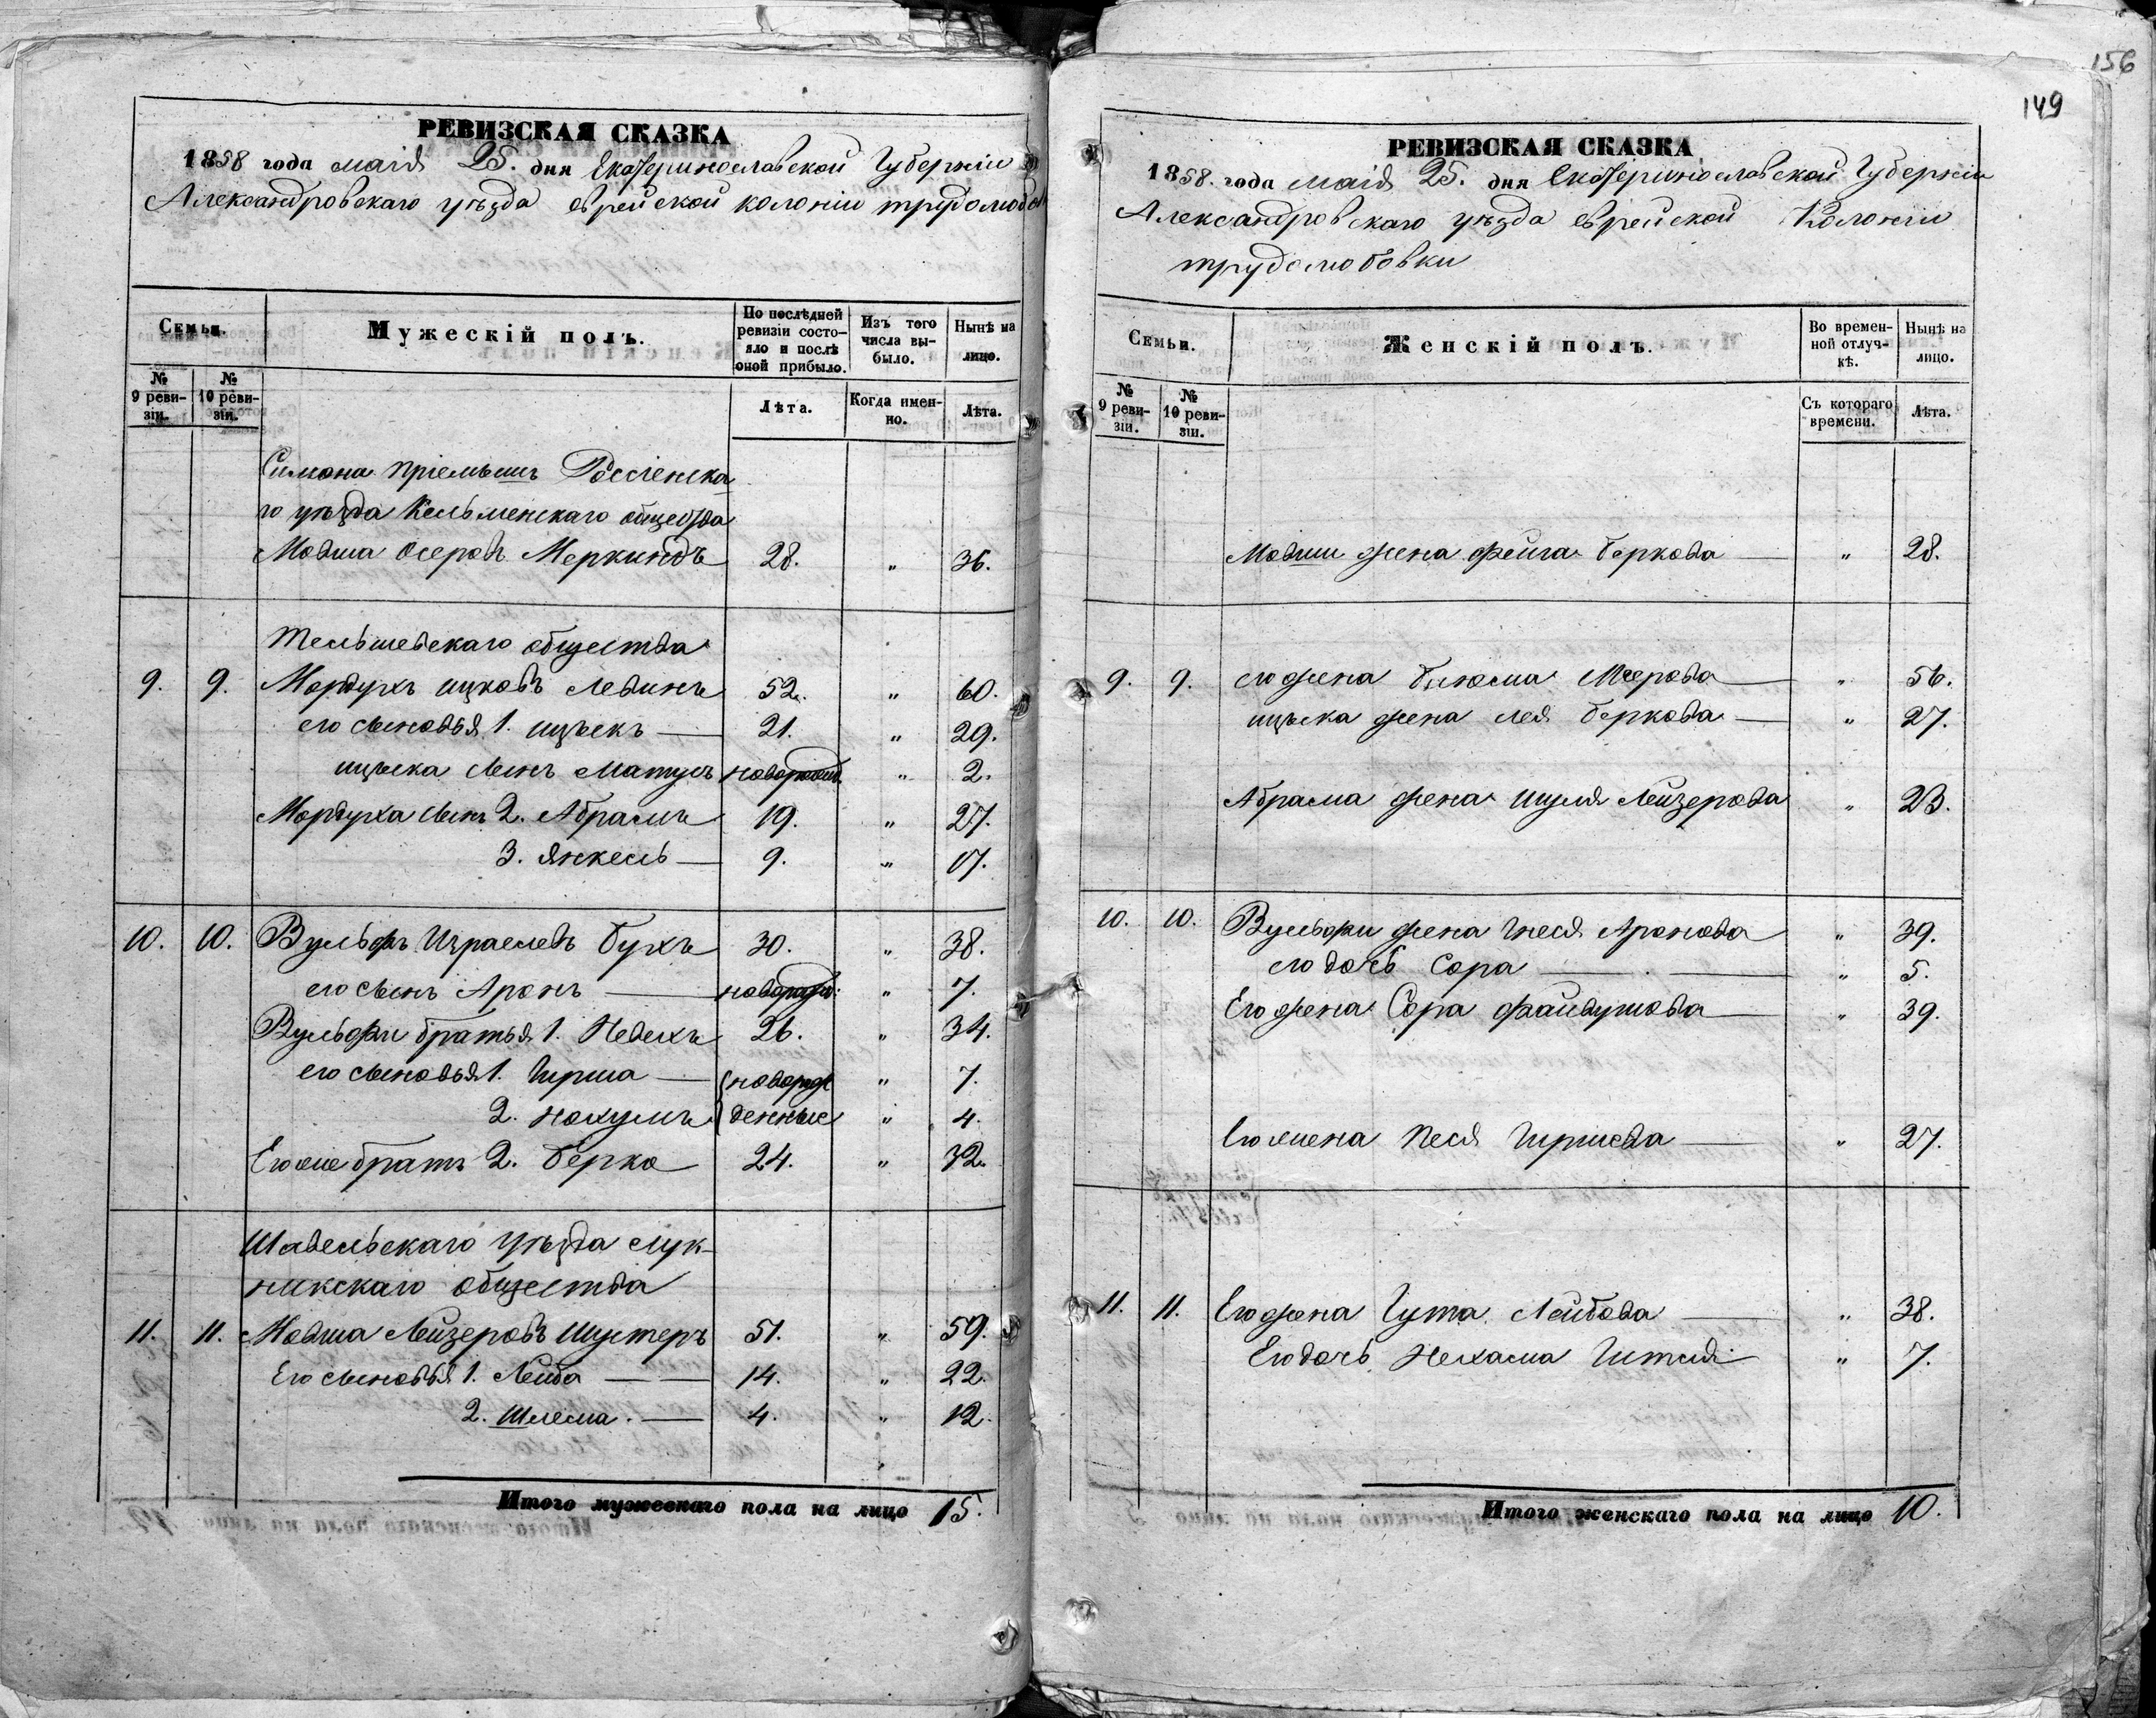 156
149
РЕВИЗСКАЯ СКАЗКА
1858 года маія 25. дня Екатеринославской Губерніи
Александровскаго уѣзда еврейской колоніи трудолюбов
Семьи.
Мужескій полъ.
По послѣдней ревизіи состояло и послѣ оной прибыло.
Изъ того числа выбыло.
Нынѣ на лицо.
№ 9 ревизіи.
№ 10 ревизіи.
Лѣта.
Когда именно.
Лѣта.
Симона пріемышъ Россіенска
го уѣзда Кельменскаго общества
Мовша Осеровъ Меркиндъ 28. " 36.
Тельшевскаго общества
9. 9. Мордухъ ицковъ Левинъ 52. " 60.
его сыновья 1. ицъекъ 21. " 29.
ицъека сынъ Матусъ новорожд. " 2.
Мордуха сынъ 2. Абрамъ 19. " 27.
3. Янкель 9. " 17.
10. 10. Вульфъ Израелевъ Бухъ 30. " 38.
его сынъ Аронъ новорожд: " 7.
Вульфи братья 1. Невехъ 26. " 34.
его сыновья 1. Гирша новорож " 7.
2. нохумъ денные " 4.
Его же братъ 2. Берко 24. " 32.
Шавельскаго уѣзда Лук-
никскаго общества
11. 11. Мовша Лейзеровъ Шустеръ 51. " 59.
Его сыновья 1. Лейба 14. " 22.
2. Шлема. 4. " 12.
Итого мужескаго пола на лицо 15.
РЕВИЗСКАЯ СКАЗКА
1858. года маія 25. дня Екатеринославской Губерніи
Александровскаго уѣзда еврейской Колоніи
трудолюбовки
Семьи.
Женскій полъ.
Во временной отлучкѣ.
Нынѣ на лицо.
№ 9 ревизіи.
№ 10 ревизіи.
Съ котораго времени.
Лѣта.
Мовши жена фейга Беркова " 28.
9. 9. его жена Блюма Меерова " 56.
ицъка жена лея Беркова " 27.
Абрама жена Шуля Лейзерова " 23.
10. 10. Вульфи жена Гнеся Аронова " 39.
его дочь Сора " 5.
Его жена Сора файвушова " 39.
Его жена Песя Гиршева " 27.
11. 11. Его жена Гута Лейбова " 38.
Его дочь Нехама Гитля " 7.
Итого женскаго пола на лицо 10.